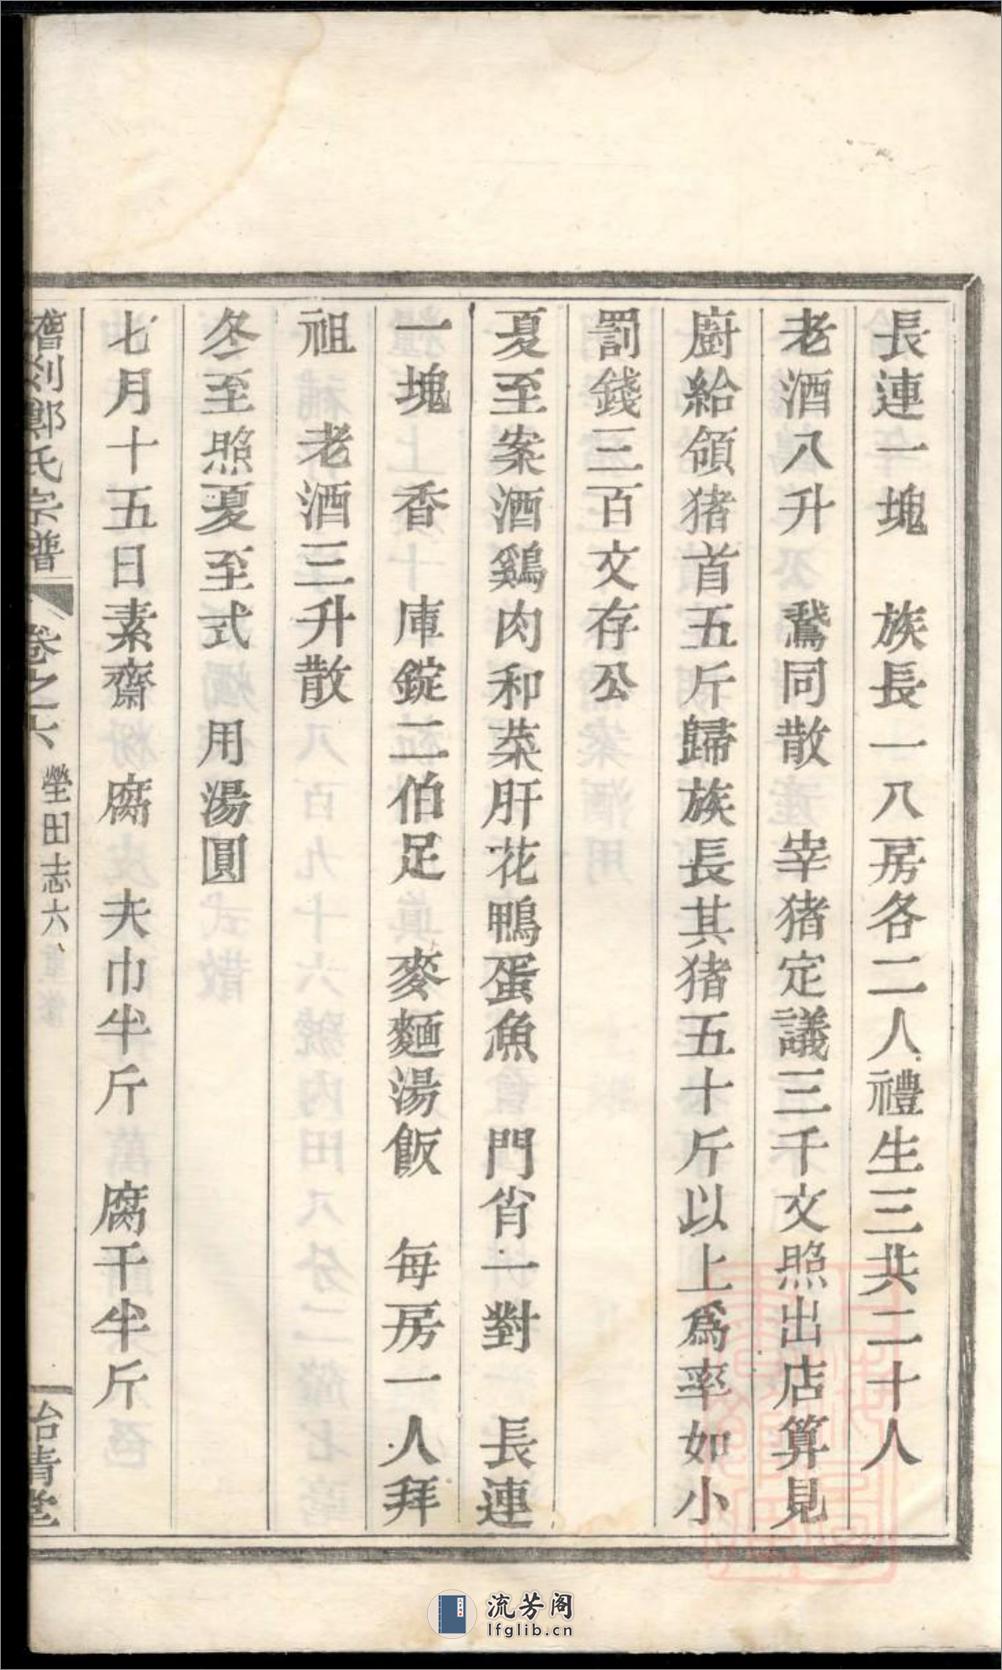 長連一塊　族長一八房各二人禮生三共二十人
老酒八升　鵞同散　宰猪定議三千文照出店算見
廚給領猪首五斤歸族長其猪五十斤以上爲率如小
罰錢三百文存公
夏至案酒鷄肉和菜肝花鴨蛋魚　門省一對　長連
一塊　香　庫錠二伯足　麥麵湯飯　每房一人拜
祖　老酒三升散
冬至照夏至式　用湯圓
七月十五日素齋　腐　夫巾半斤　腐干半斤
剡鄭氏宗譜
卷之六　塋田志六、
流芳阁
lfglib.cn